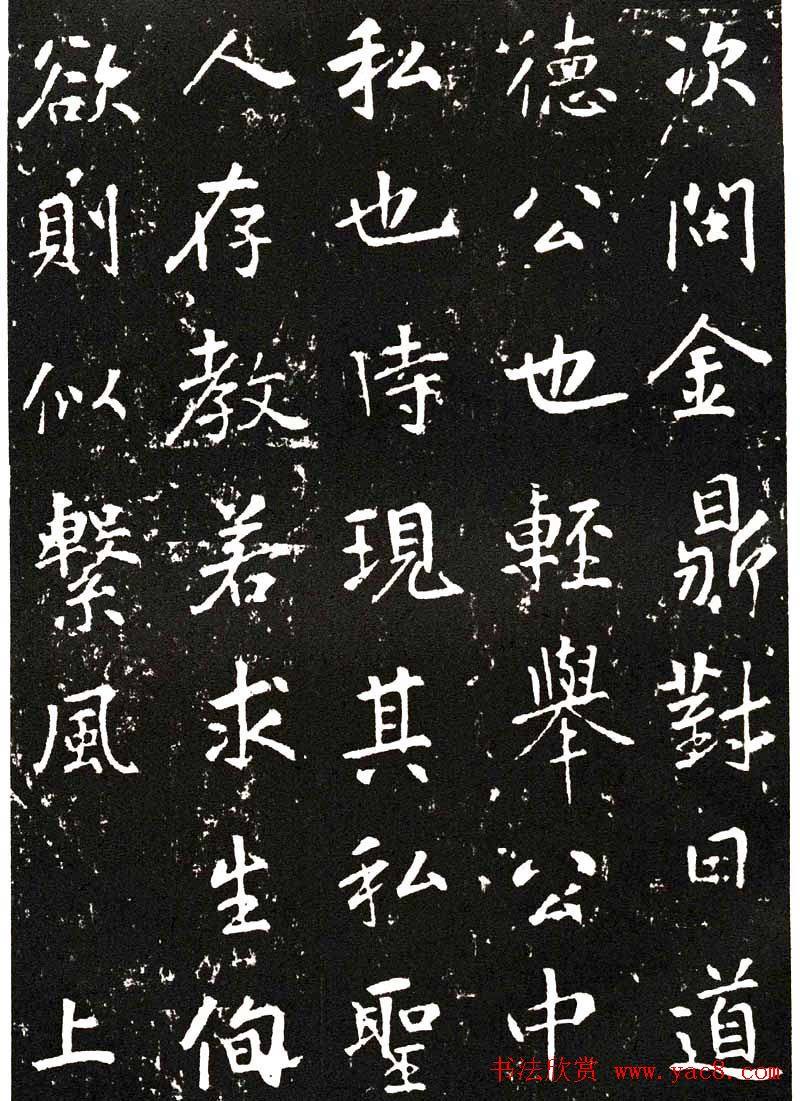 次问金鼎對曰道
德公也輕舉公中
私也時現其私聖
人存教若求生徇
欲則似繫風 上
书法欣赏 www.yac8.com